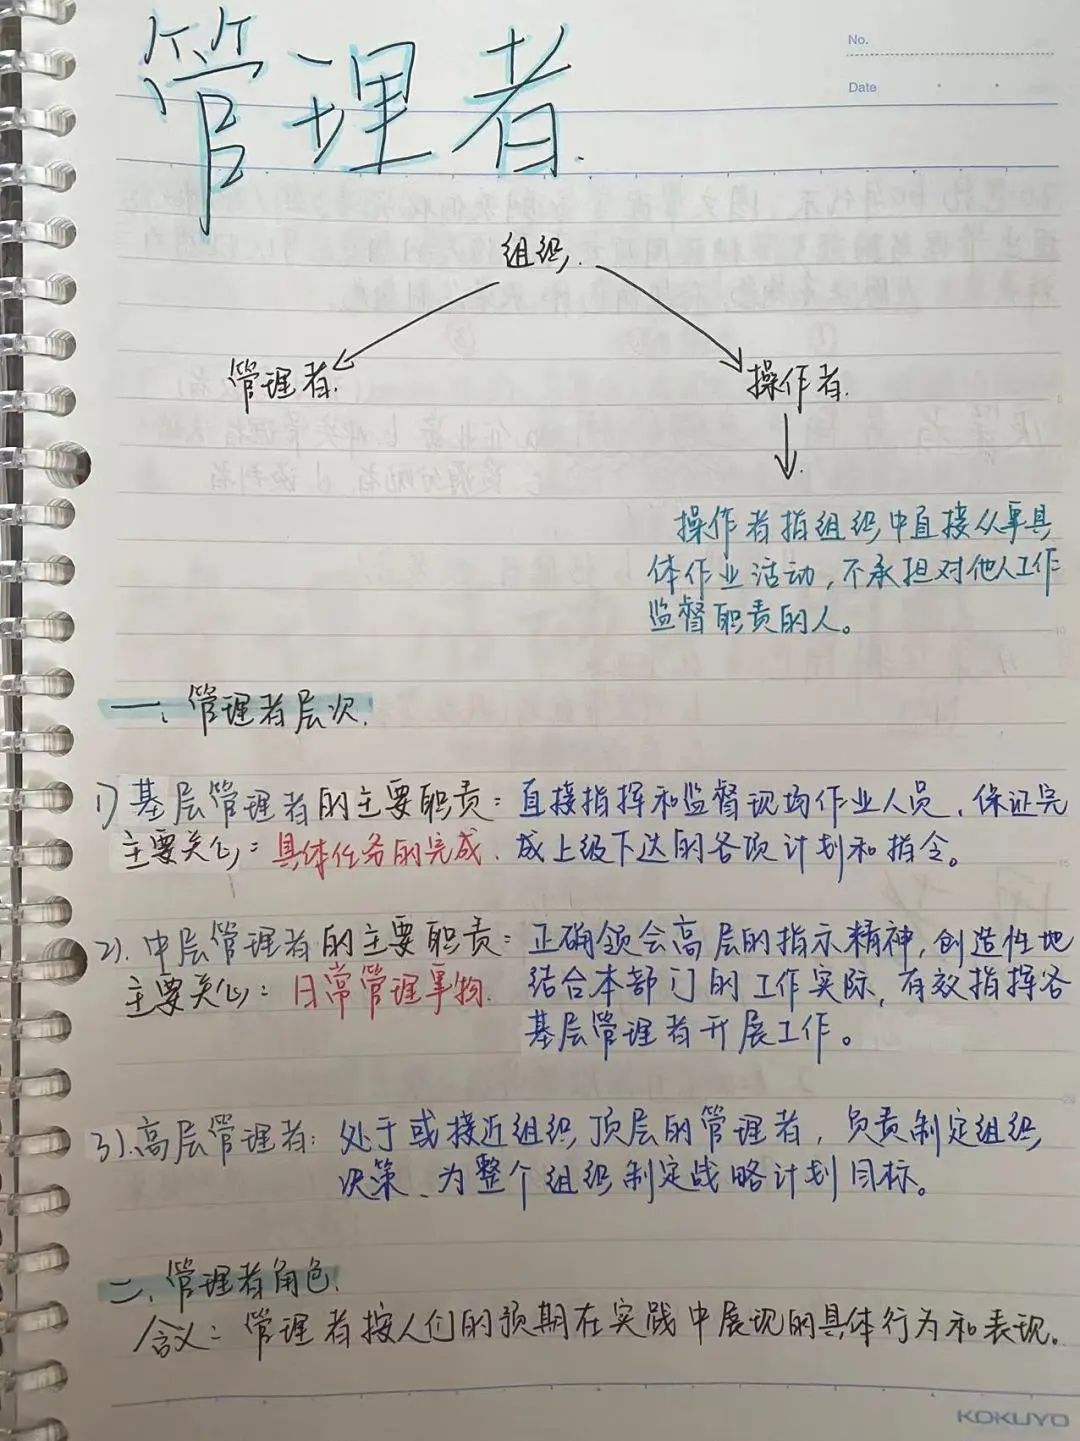 No.
Date
管理者.
组织.
管理者.
操作者.
操作者指组织中直接从事具
体作业活动，不承担对他人工作
监督职责的人。
一、管理者层次.
1）基层管理者的主要职责：直接指挥和监督现场作业人员，保证完
主要关心：具体任务的完成. 成上级下达的各项计划和指令。
2）.中层管理者的主要职责：正确领会高层的指示精神，创造性地
主要关心：日常管理事物. 结合本部门的工作实际，有效指挥各
基层管理者开展工作。
3）.高层管理者：处于或接近组织顶层的管理者，负责制定组织
决策、为整个组织制定战略计划目标。
二、管理者角色.
含义：管理者按人们的预期在实践中展现的具体行为和表现。
KOKUYO